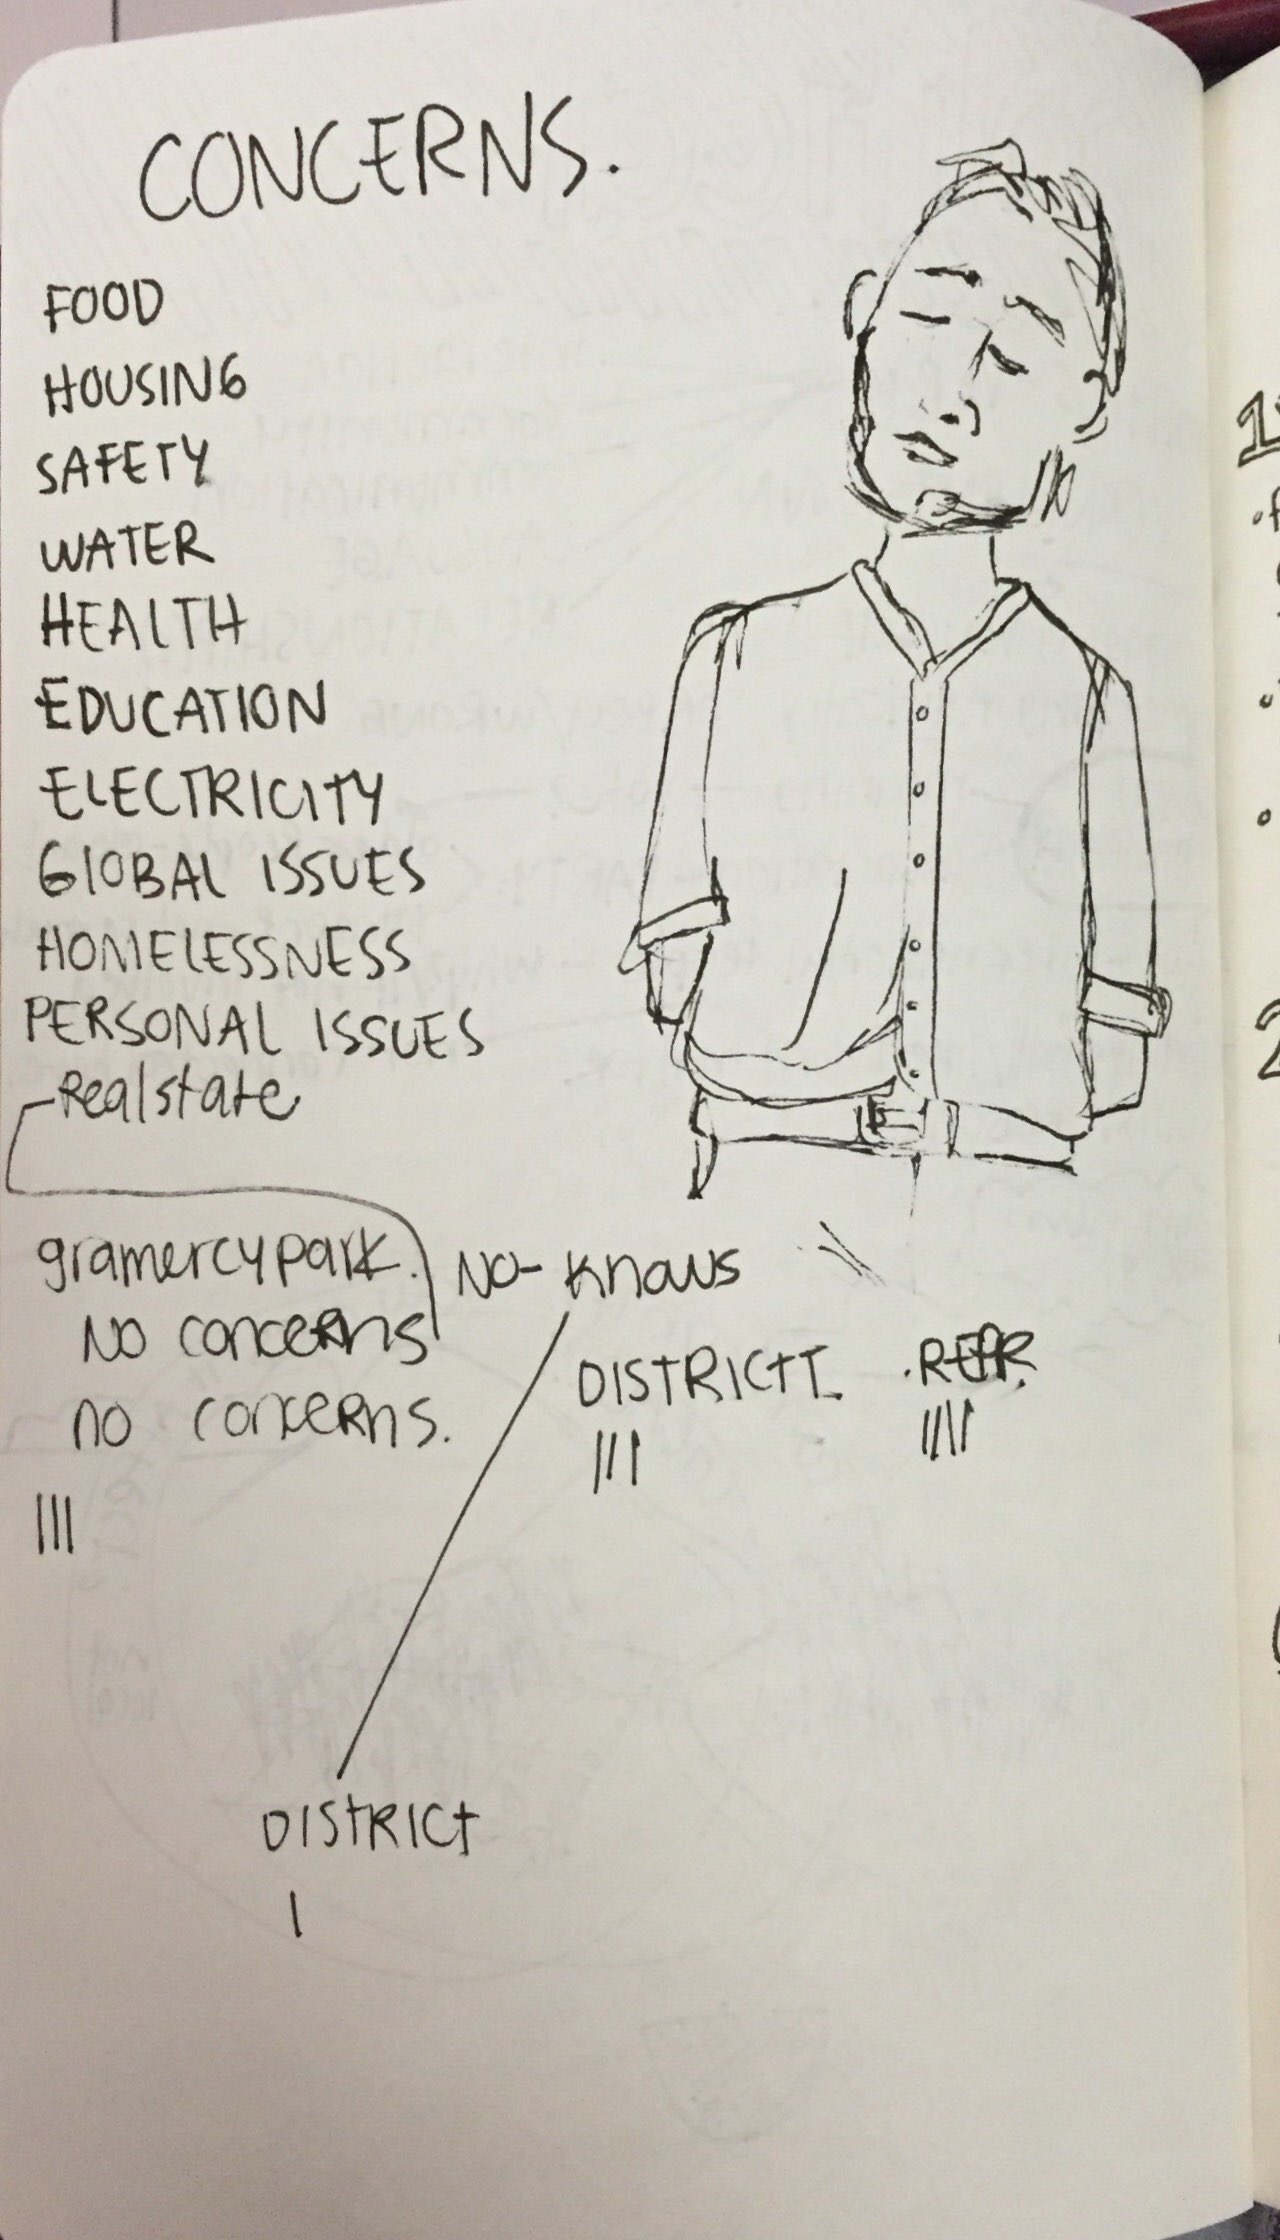 CONCERNS.
FOOD
HOUSING
SAFETY
WATER
HEALTH
EDUCATION
ELECTRICITY
GLOBAL ISSUES
HOMELESSNESS
PERSONAL ISSUES
Realstate
gramercy park.
NO concerns
no concerns.
|||
NO- Knows
DISTRICTT.
|||
||||
DISTRICT
|
1
2